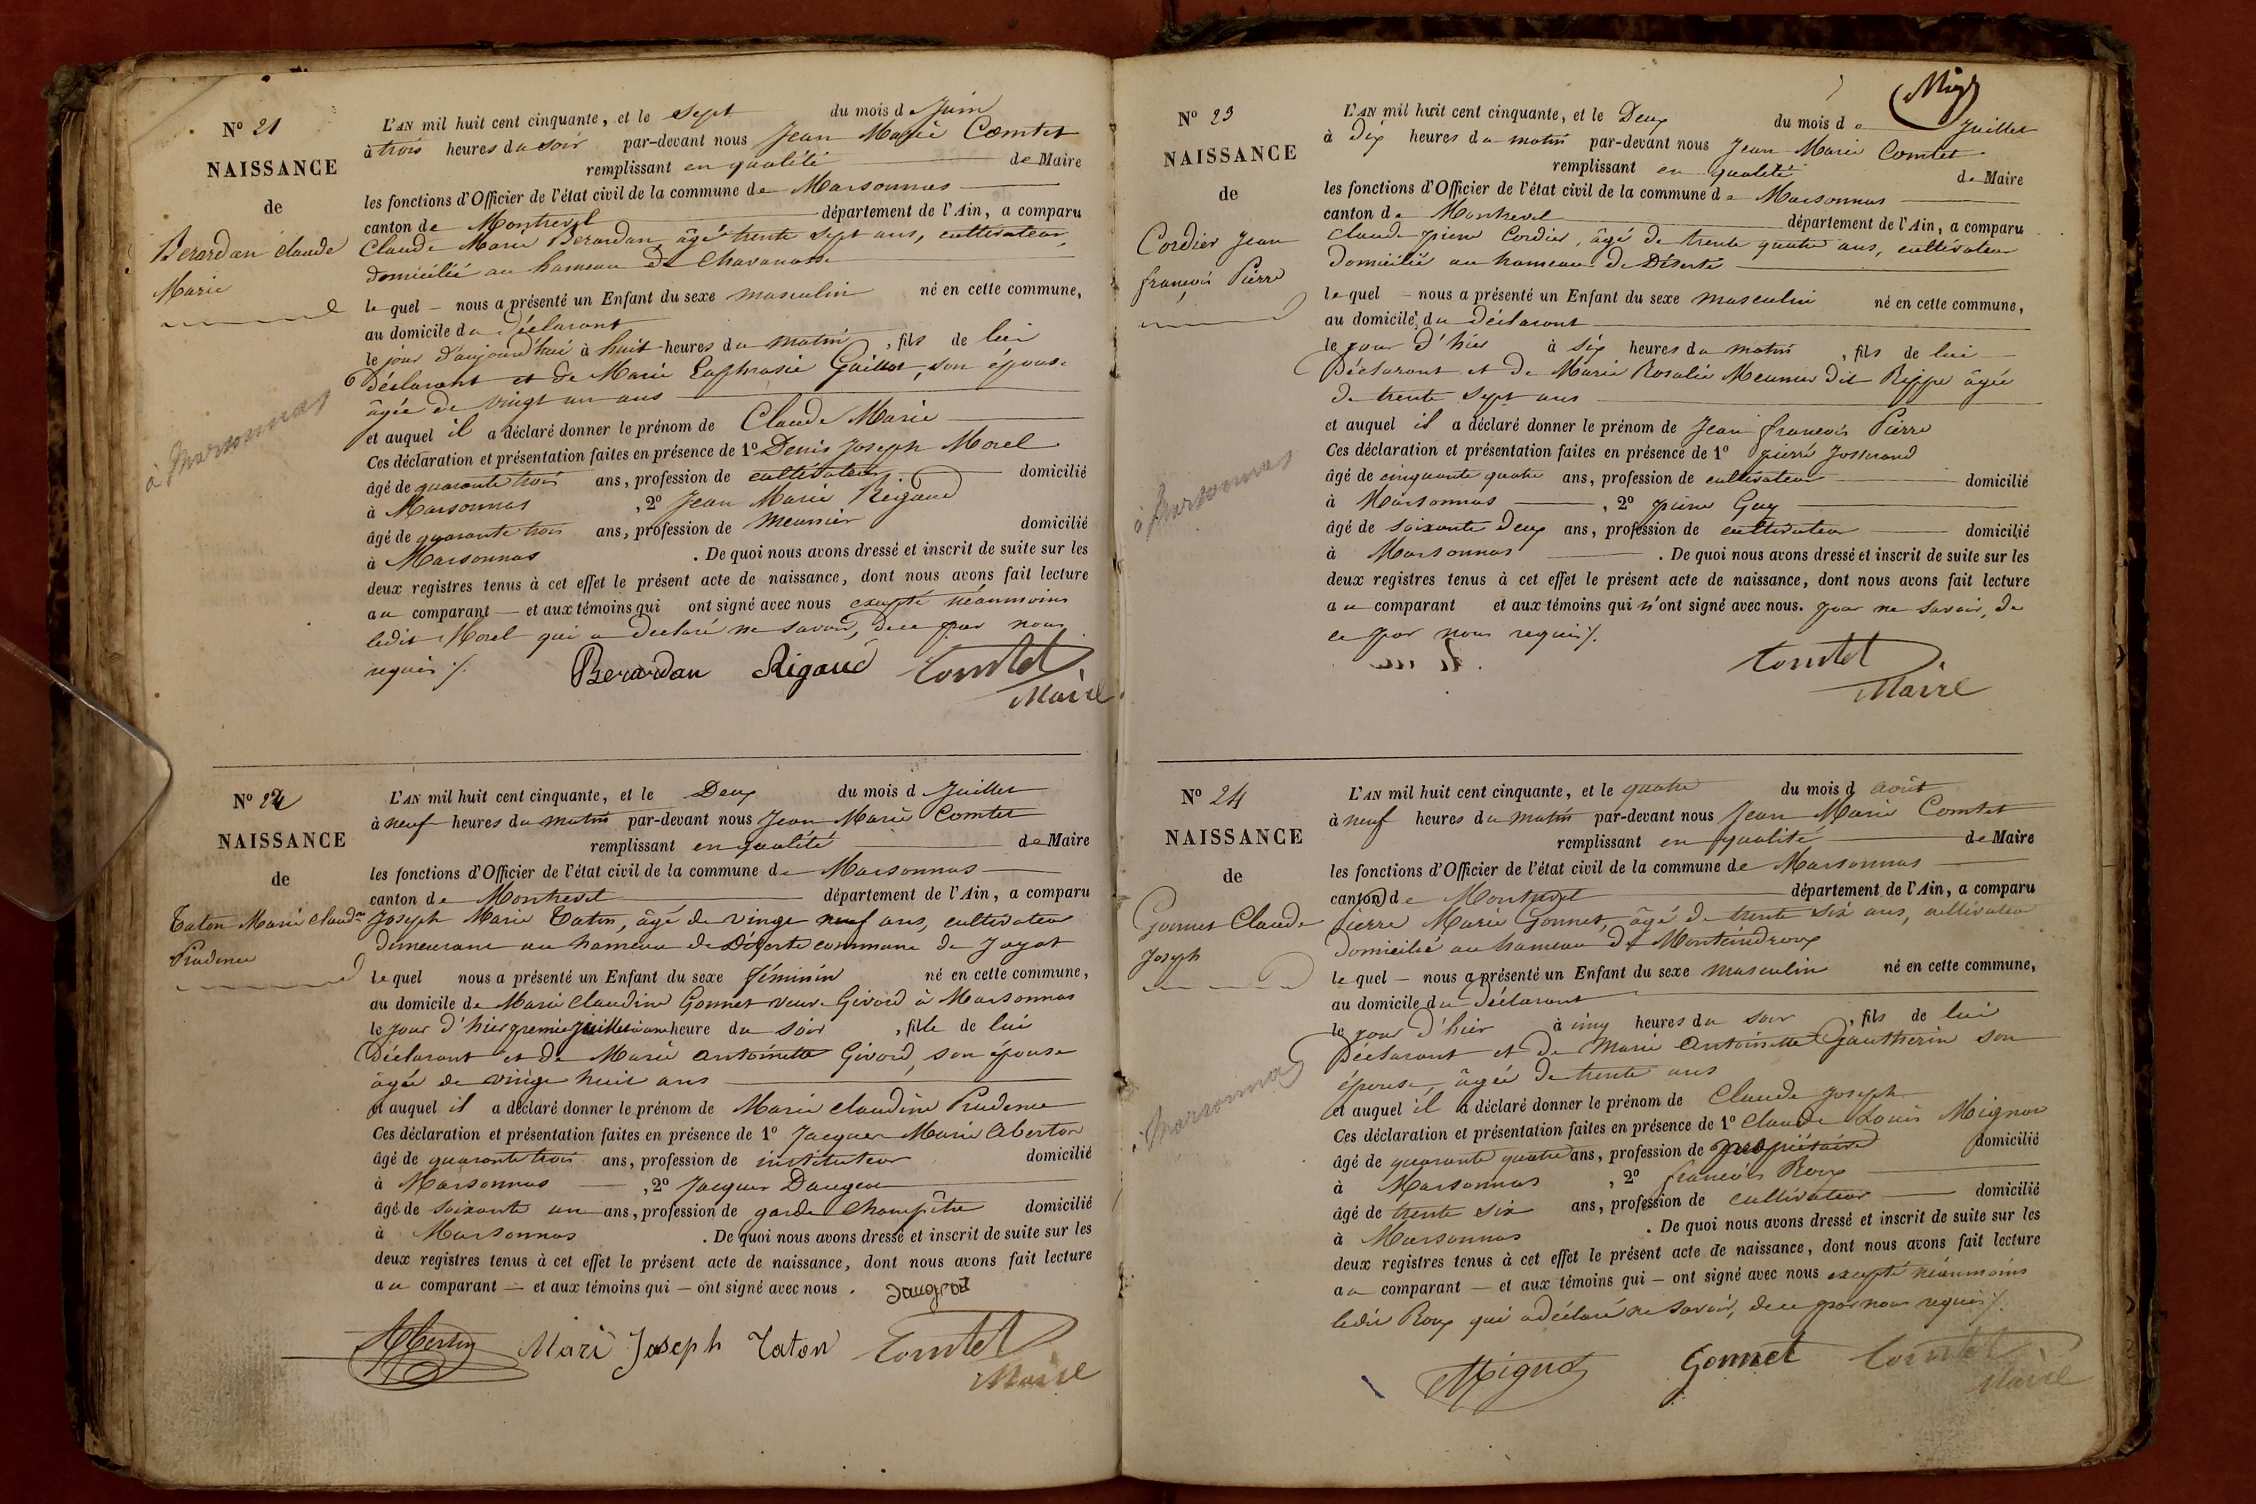 N° 21
NAISSANCE
de
Berardan Claude
Marie
à Marsonnas
L'AN mil huit cent cinquante, et le sept du mois de Juin
à trois heures du soir par-devant nous Jean Marie Comtet
remplissant en qualité de Maire
les fonctions d'Officier de l'état civil de la commune de Marsonnas
canton de Montrevel département de l'Ain, a comparu
Claude Marie Berardan, âgé trente sept ans, cultivateur,
domicilié au hameau de Chavanosse
lequel – nous a présenté un Enfant du sexe masculin né en cette commune,
au domicile du déclarant
le jour d'aujourd'hui à huit heures du matin, fils de lui
Déclarant et de Marie Euphrasie Gaillot, son épouse
âgée de vingt un ans
et auquel il a déclaré donner le prénom de Claude Marie
Ces déclaration et présentation faites en présence de 1° Denis Joseph Morel
âgé de quarante trois ans, profession de cultivateur domicilié
à Marsonnas, 2° Jean Marie Reigaud
âgé de quarante trois ans, profession de meunier domicilié
à Marsonnas. De quoi nous avons dressé et inscrit de suite sur les
deux registres tenus à cet effet le présent acte de naissance, dont nous avons fait lecture
au comparant – et aux témoins qui ont signé avec nous excepté néanmoins
ledit Morel qui a declaré ne savoir, de ce par nous
requis ./.
Berardan Rigaud Comtet
Maire
N° 22
NAISSANCE
de
Taton Marie Claudne
Prudence
L'AN mil huit cent cinquante, et le Deux du mois d Juillet
à neuf heures du matin par-devant nous Jean Marie Comtet
remplissant en qualité de Maire
les fonctions d'Officier de l'état civil de la commune de Marsonnas
canton de Montrevel département de l'Ain, a comparu
Joseph Marie Taton, âgé de vingt neuf ans, cultivateur
demeurant au hameau de Déserte commune de Jayat
lequel nous a présenté un Enfant du sexe féminin né en cette commune,
au domicile de Marie Claudine Gonnet veuve Givord à Marsonnas
le jour d'hier premier Juillet à une heure du soir, fille de lui
Déclarant et de Marie Antoinette Givord, son épouse
âgée de vingt huit ans
et auquel il a déclaré donner le prénom de Marie Claudine Prudence
Ces déclaration et présentation faites en présence de 1° Jacques Marie Aberton
âgé de quarante trois ans, profession de instituteur domicilié
à Marsonnas, 2° Jacques Daugeat
âgé de soixante un ans, profession de garde champêtre domicilié
à Marsonnas. De quoi nous avons dressé et inscrit de suite sur les
deux registres tenus à cet effet le présent acte de naissance, dont nous avons fait lecture
au comparant – et aux témoins qui – ont signé avec nous.
Mari Joseph Taton Comtet
Maire
N° 23
NAISSANCE
de
Cordier Jean
françois Pierre
à Marsonnas
L'AN mil huit cent cinquante, et le Deux du mois de Juillet
à dix heures du matin par-devant nous Jean Marie Comtet
remplissant en qualité de Maire
les fonctions d'Officier de l'état civil de la commune de Marsonnas
canton de Montrevel département de l'Ain, a comparu
Claude pierre Cordier, âgé de trente quatre ans, cultivateur
domicilié au hameau de Déserte
lequel – nous a présenté un Enfant du sexe masculin né en cette commune,
au domicile du déclarant
le jour d'hier à six heures du matin, fils de lui
Déclarant et de Marie Rosalie Meunier dit Rippe âgée
de trente sept ans
et auquel il a déclaré donner le prénom de Jean françois Pierre
Ces déclaration et présentation faites en présence de 1° pierre Josserand
âgé de cinquante quatre ans, profession de cultivateur domicilié
à Marsonnas, 2° pierre Guy
âgé de soixante deux ans, profession de cultivateur domicilié
à Marsonnas. De quoi nous avons dressé et inscrit de suite sur les
deux registres tenus à cet effet le présent acte de naissance, dont nous avons fait lecture
au comparant et aux témoins qui n'ont signé avec nous. pour ne savoir, de
ce par nous requis ./.
Comtet
Maire
N° 24
NAISSANCE
de
Gonnet Claude
Joseph
à Marsonnas
L'AN mil huit cent cinquante, et le quatre du mois d août
à neuf heures du matin par-devant nous Jean Marie Comtet
remplissant en qualité de Maire
les fonctions d'Officier de l'état civil de la commune de Marsonnas
canton de Montrevel département de l'Ain, a comparu
Pierre Marie Gonnet, âgé de trente six ans, cultivateur
domicilié au hameau de Montaindroux
lequel – nous a présenté un Enfant du sexe masculin né en cette commune,
au domicile du déclarant
le jour d'hier à cinq heures du soir, fils de lui
Déclarant et de Marie Antoinette Gautherin son
épouse, âgée de trente ans
et auquel il a déclaré donner le prénom de Claude Joseph
Ces déclaration et présentation faites en présence de 1° Claude Louis Mignot
âgé de quarante quatre ans, profession de propriétaire domicilié
à Marsonnas, 2° françois Roux
âgé de trente six ans, profession de cultivateur domicilié
à Marsonnas. De quoi nous avons dressé et inscrit de suite sur les
deux registres tenus à cet effet le présent acte de naissance, dont nous avons fait lecture
au comparant – et aux témoins qui – ont signé avec nous excepté néanmoins
ledit Roux qui a déclaré ne savoir, de ce par nous requis ./.
Mignot Gonnet Comtet
Maire